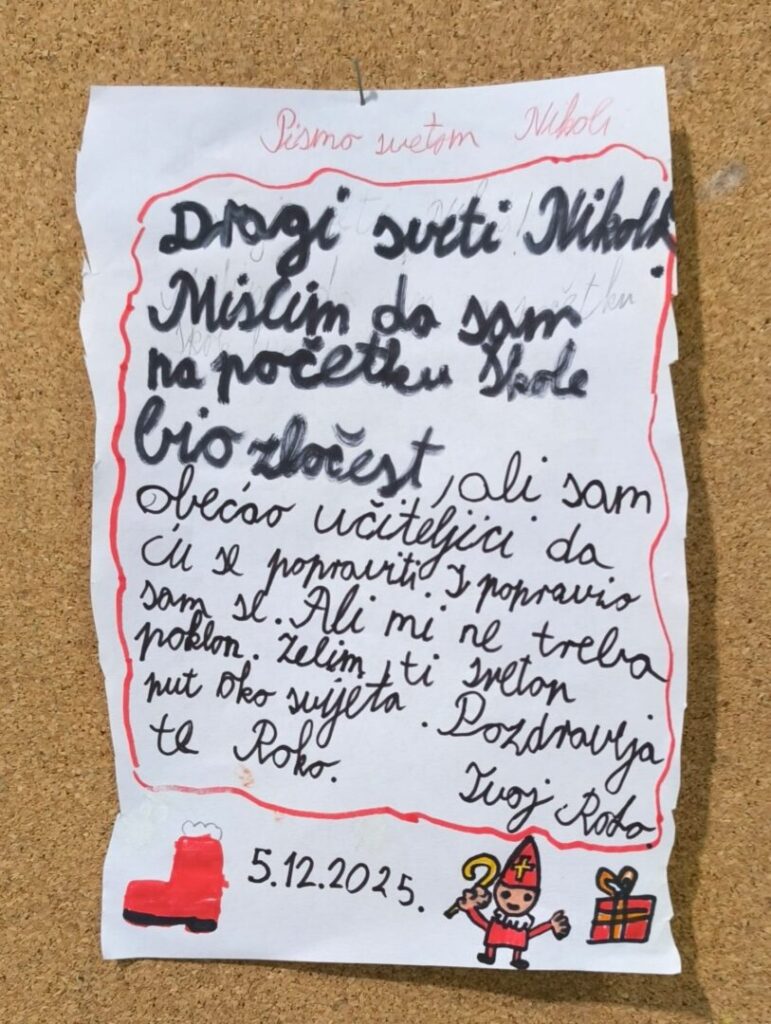 Pismo svetom Nikoli
Dragi sveti Nikola
Mislim da sam
na početku škole
bio zločest, ali sam
obećao učiteljici da
ću se popraviti. I popravio
sam se. Ali mi ne treba
poklon. Želim ti sretan
put oko svijeta. Pozdravlja
te Roko.
Tvoj Roko.
5.12.2025.